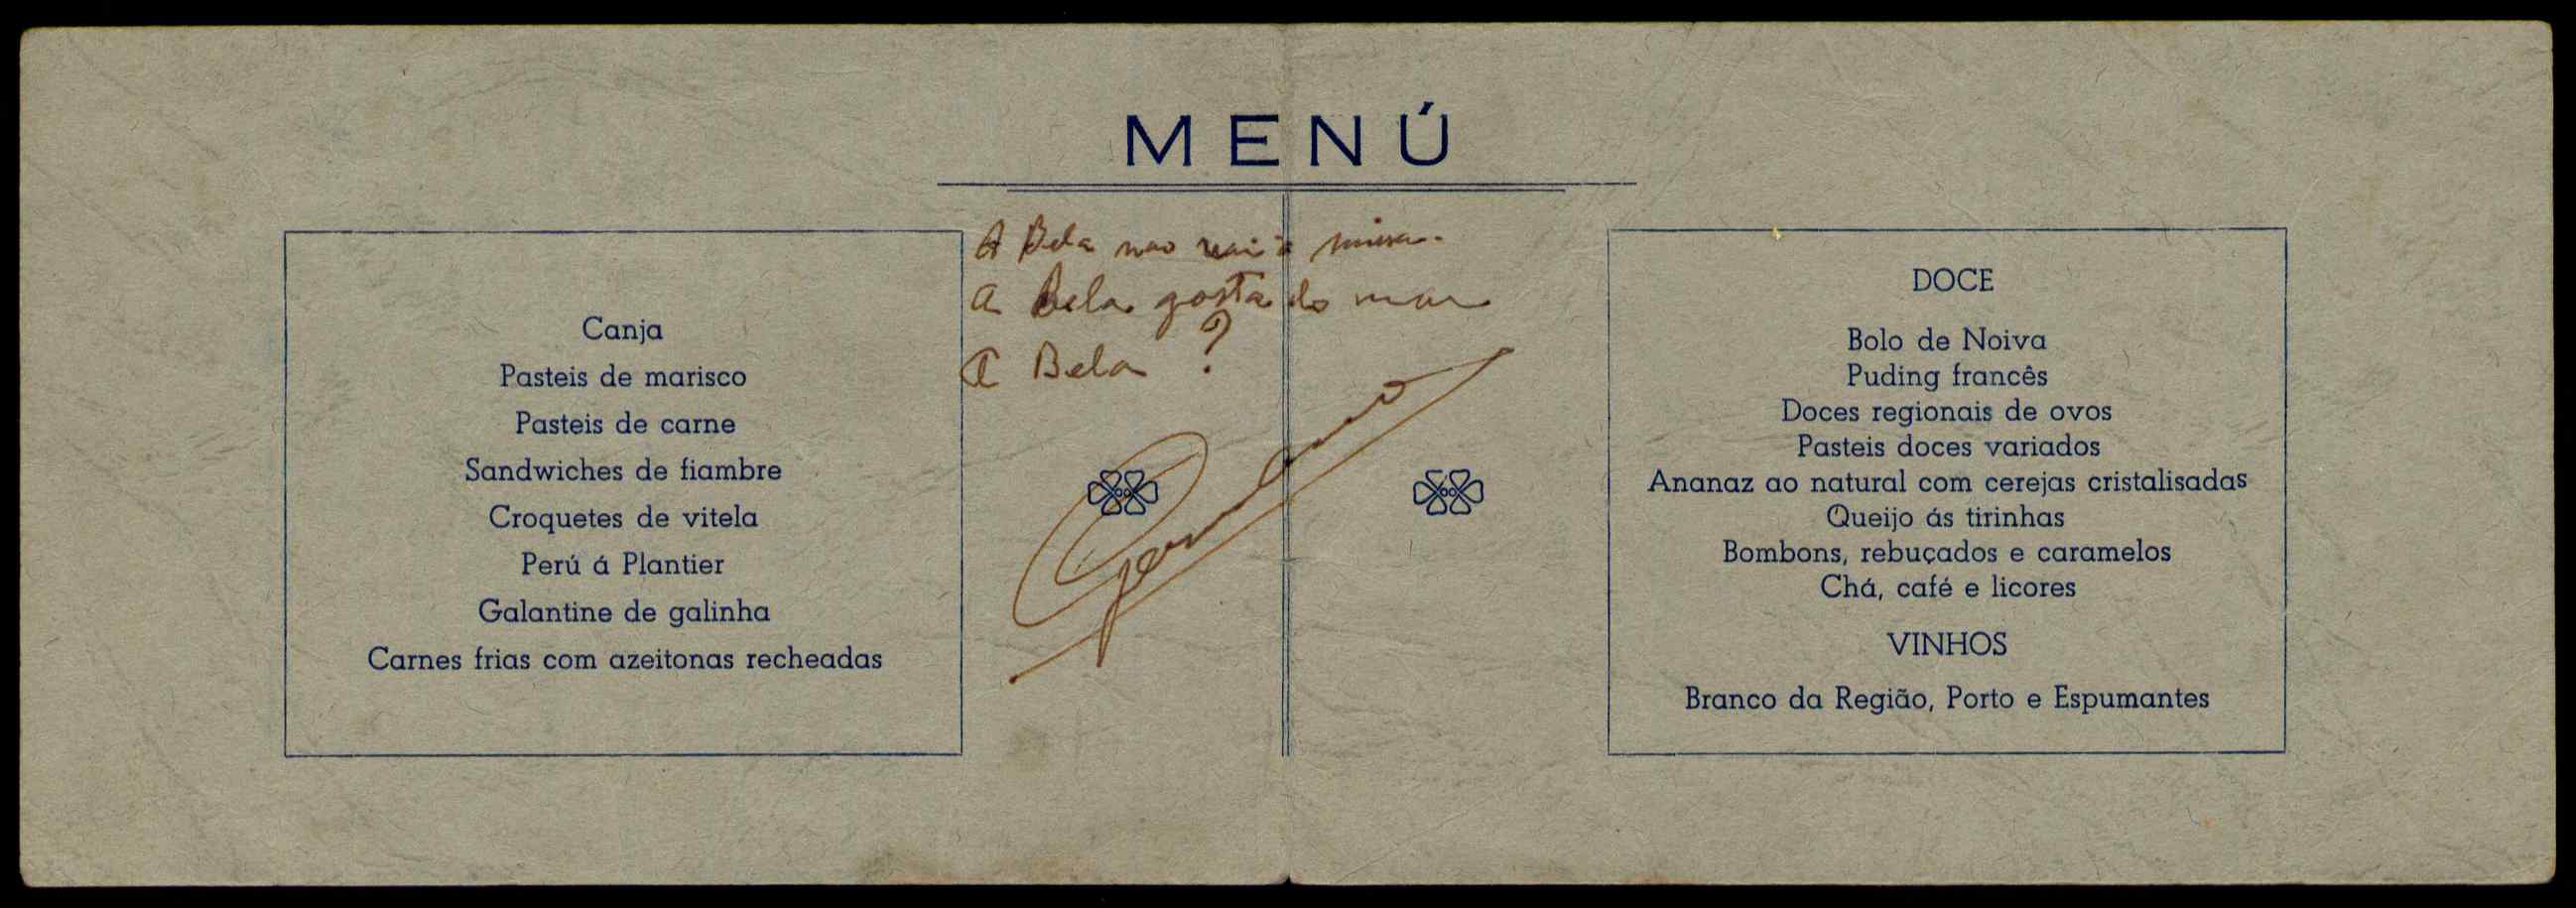 MENÚ
Canja
Pasteis de marisco
Pasteis de carne
Sandwiches de fiambre
Croquetes de vitela
Perú á Plantier
Galantine de galinha
Carnes frias com azeitonas recheadas
A Bela nao vai à missa.
A Bela gosta do mar
A Bela ?
DOCE
Bolo de Noiva
Puding francês
Doces regionais de ovos
Pasteis doces variados
Ananaz ao natural com cerejas cristalisadas
Queijo ás tirinhas
Bombons, rebuçados e caramelos
Chá, café e licores
VINHOS
Branco da Região, Porto e Espumantes